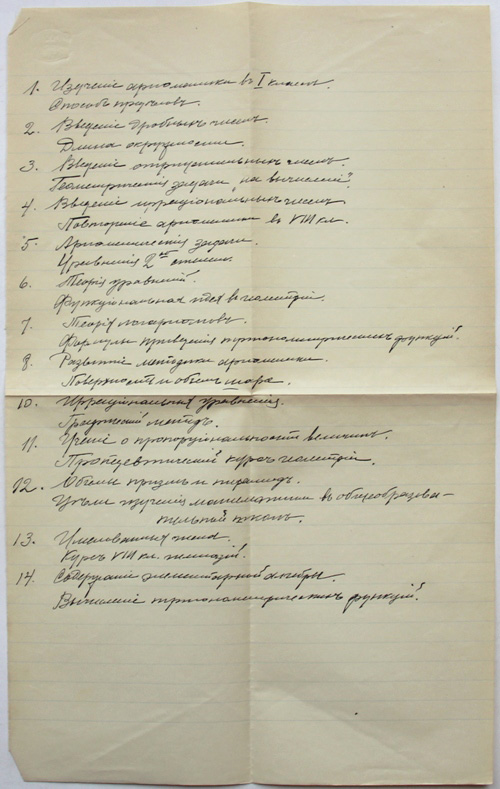 1. Изученіе ариѳметики въ I классѣ.
Способъ предѣловъ.
2. Введеніе дробныхъ чиселъ.
Длина окружности.
3. Введеніе отрицательныхъ чиселъ.
Геометрическія задачи „на вычисленіе".
4. Введеніе ирраціональныхъ чиселъ.
Повтореніе ариѳметики въ VIII кл.
5. Ариѳметическія задачи.
Уравненія 2ой степени.
6. Теорія уравненій.
Функціональная идея въ геометріи.
7. Теорія логариѳмовъ.
Формулы приведенія тригонометрическихъ функцій.
8. Развитіе методики ариѳметики.
Поверхность и объемъ шара.
10. Ирраціональныя уравненія.
Графическій методъ.
11. Ученіе о пропорціональности величинъ.
Пропедевтическій курсъ геометріи.
12. Объемы призмъ и пирамидъ.
Цѣли изученія математики въ общеобразова-
тельной школѣ.
13. Именованныя числа.
Курсъ VIII кл. гимназій.
14. Содержаніе элементарной алгебры.
Вычисленіе тригонометрическихъ функцій.